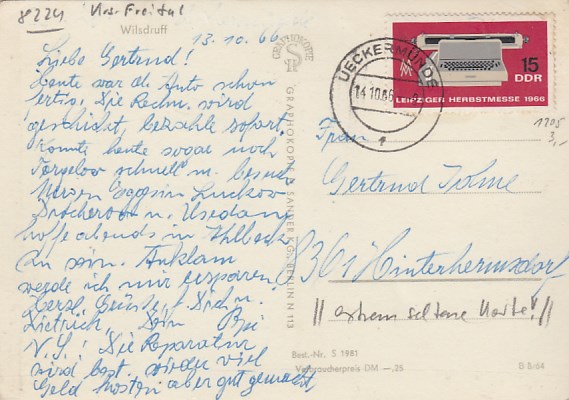 8224 Krs. Freital
Wilsdruff
13.10.66
Liebe Gertrud!
Heute war d. Auto schon
fertig. Die Rechn. wird
geschickt, bezahle sofort.
Konnte heute sogar noch
Torgelow schnell u.
Eggesin Luckow
u. Usedom
hoffe abends in Ahlbeck
zu sein. Anklam
werde ich mir ersparen!
Herzl. Grüße, f. Dich u.
Dietrich, Dein
N.S! Die Reparatur
wird best. wieder viel
Geld kosten aber gut gemacht
GRAPHOKOPIE
GRAPHOKOPIE H. SANDER K.G. BERLIN N 113
UECKERMÜNDE
14.10.66
15
DDR
LEIPZIGER HERBSTMESSE 1966
1205
3,-
Frau
Gertrud
8361 Hinterhermsdorf
|| extrem seltene Karte! ||
Best.-Nr. S 1981
Verbraucherpreis DM -,25
B 8/64